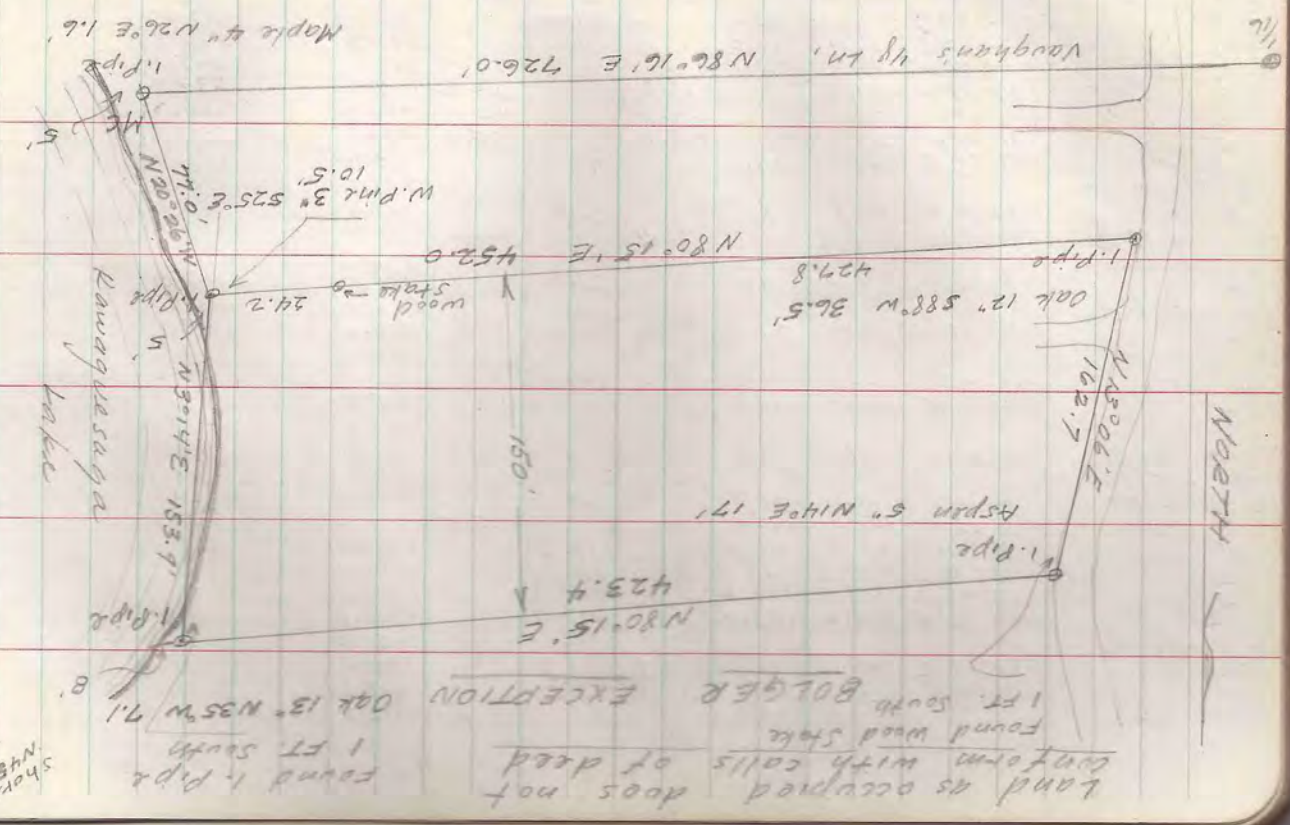 Land as occupied does not
conform with calls of deed
Found wood stake
1 FT. South
Found I. Pipe
1 FT South
BOLGER EXCEPTION
Oak 13" N35°W 7.1
8'
N80°15'E
423.4
I. Pipe
I. Pipe
Aspen 5" N14°E 17'
NORTH
150'
N3°14'E 153.9'
Kawaguesaga
Lake
162.7
Oak 12" S88°W 36.5'
427.8
I. Pipe
wood
stake
24.2
I. Pipe
5'
N80°15'E 452.0
W. Pine 3" S25°E
10.5'
77.0'
N20°26'W
5'
M
I. Pipe
Vaughan's
N86°16'E 726.0'
Maple 4" N26°E 1.6'
1/16